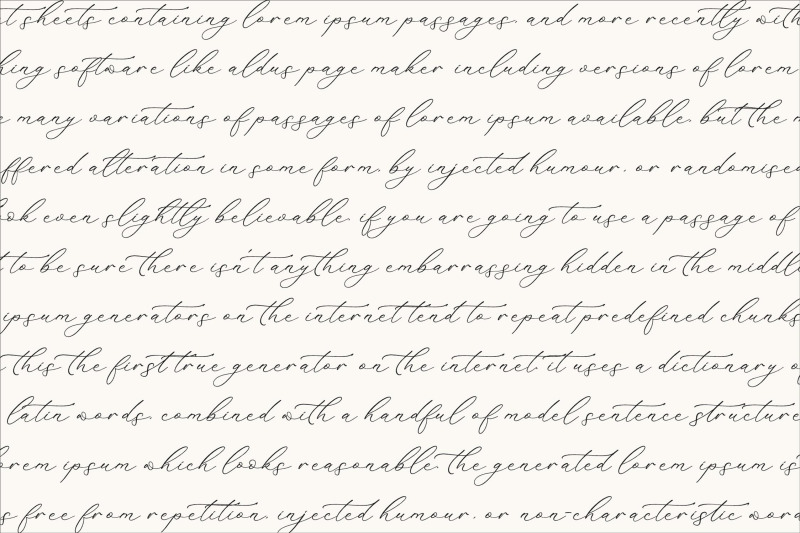 t sheets containing lorem ipsum passages. and more recently with
hing software like aldus page maker including versions of lorem
e many variations of passages of lorem ipsum available. but the m
ffered alteration in some form. by injected humour. or randomised
ook even slightly believable. if you are going to use a passage of
t to be sure there isn't anything embarrassing hidden in the middl
ipsum generators on the internet tend to repeat predefined chunks
this the first true generator on the internet. it uses a dictionary o
latin words. combined with a handful of model sentence structure
orem ipsum which looks reasonable. the generated lorem ipsum is
s free from repetition. injected humour. or non-characteristic word